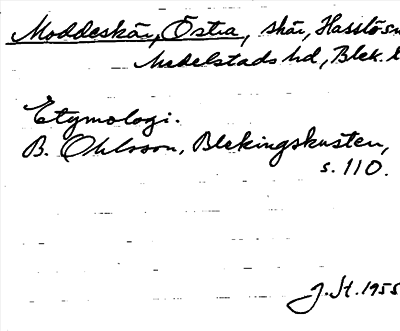 Moddeskär, Östra, skär, Hasslö sn
Medelstads hd, Blek. l
Etymologi.
B. Ohlsson, Blekingskusten,
s. 110.
J. St. 1955